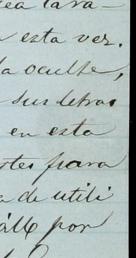 ea para-
esta vez.
la oculte,
sus letras
en esta
rtes para
a de utili
por